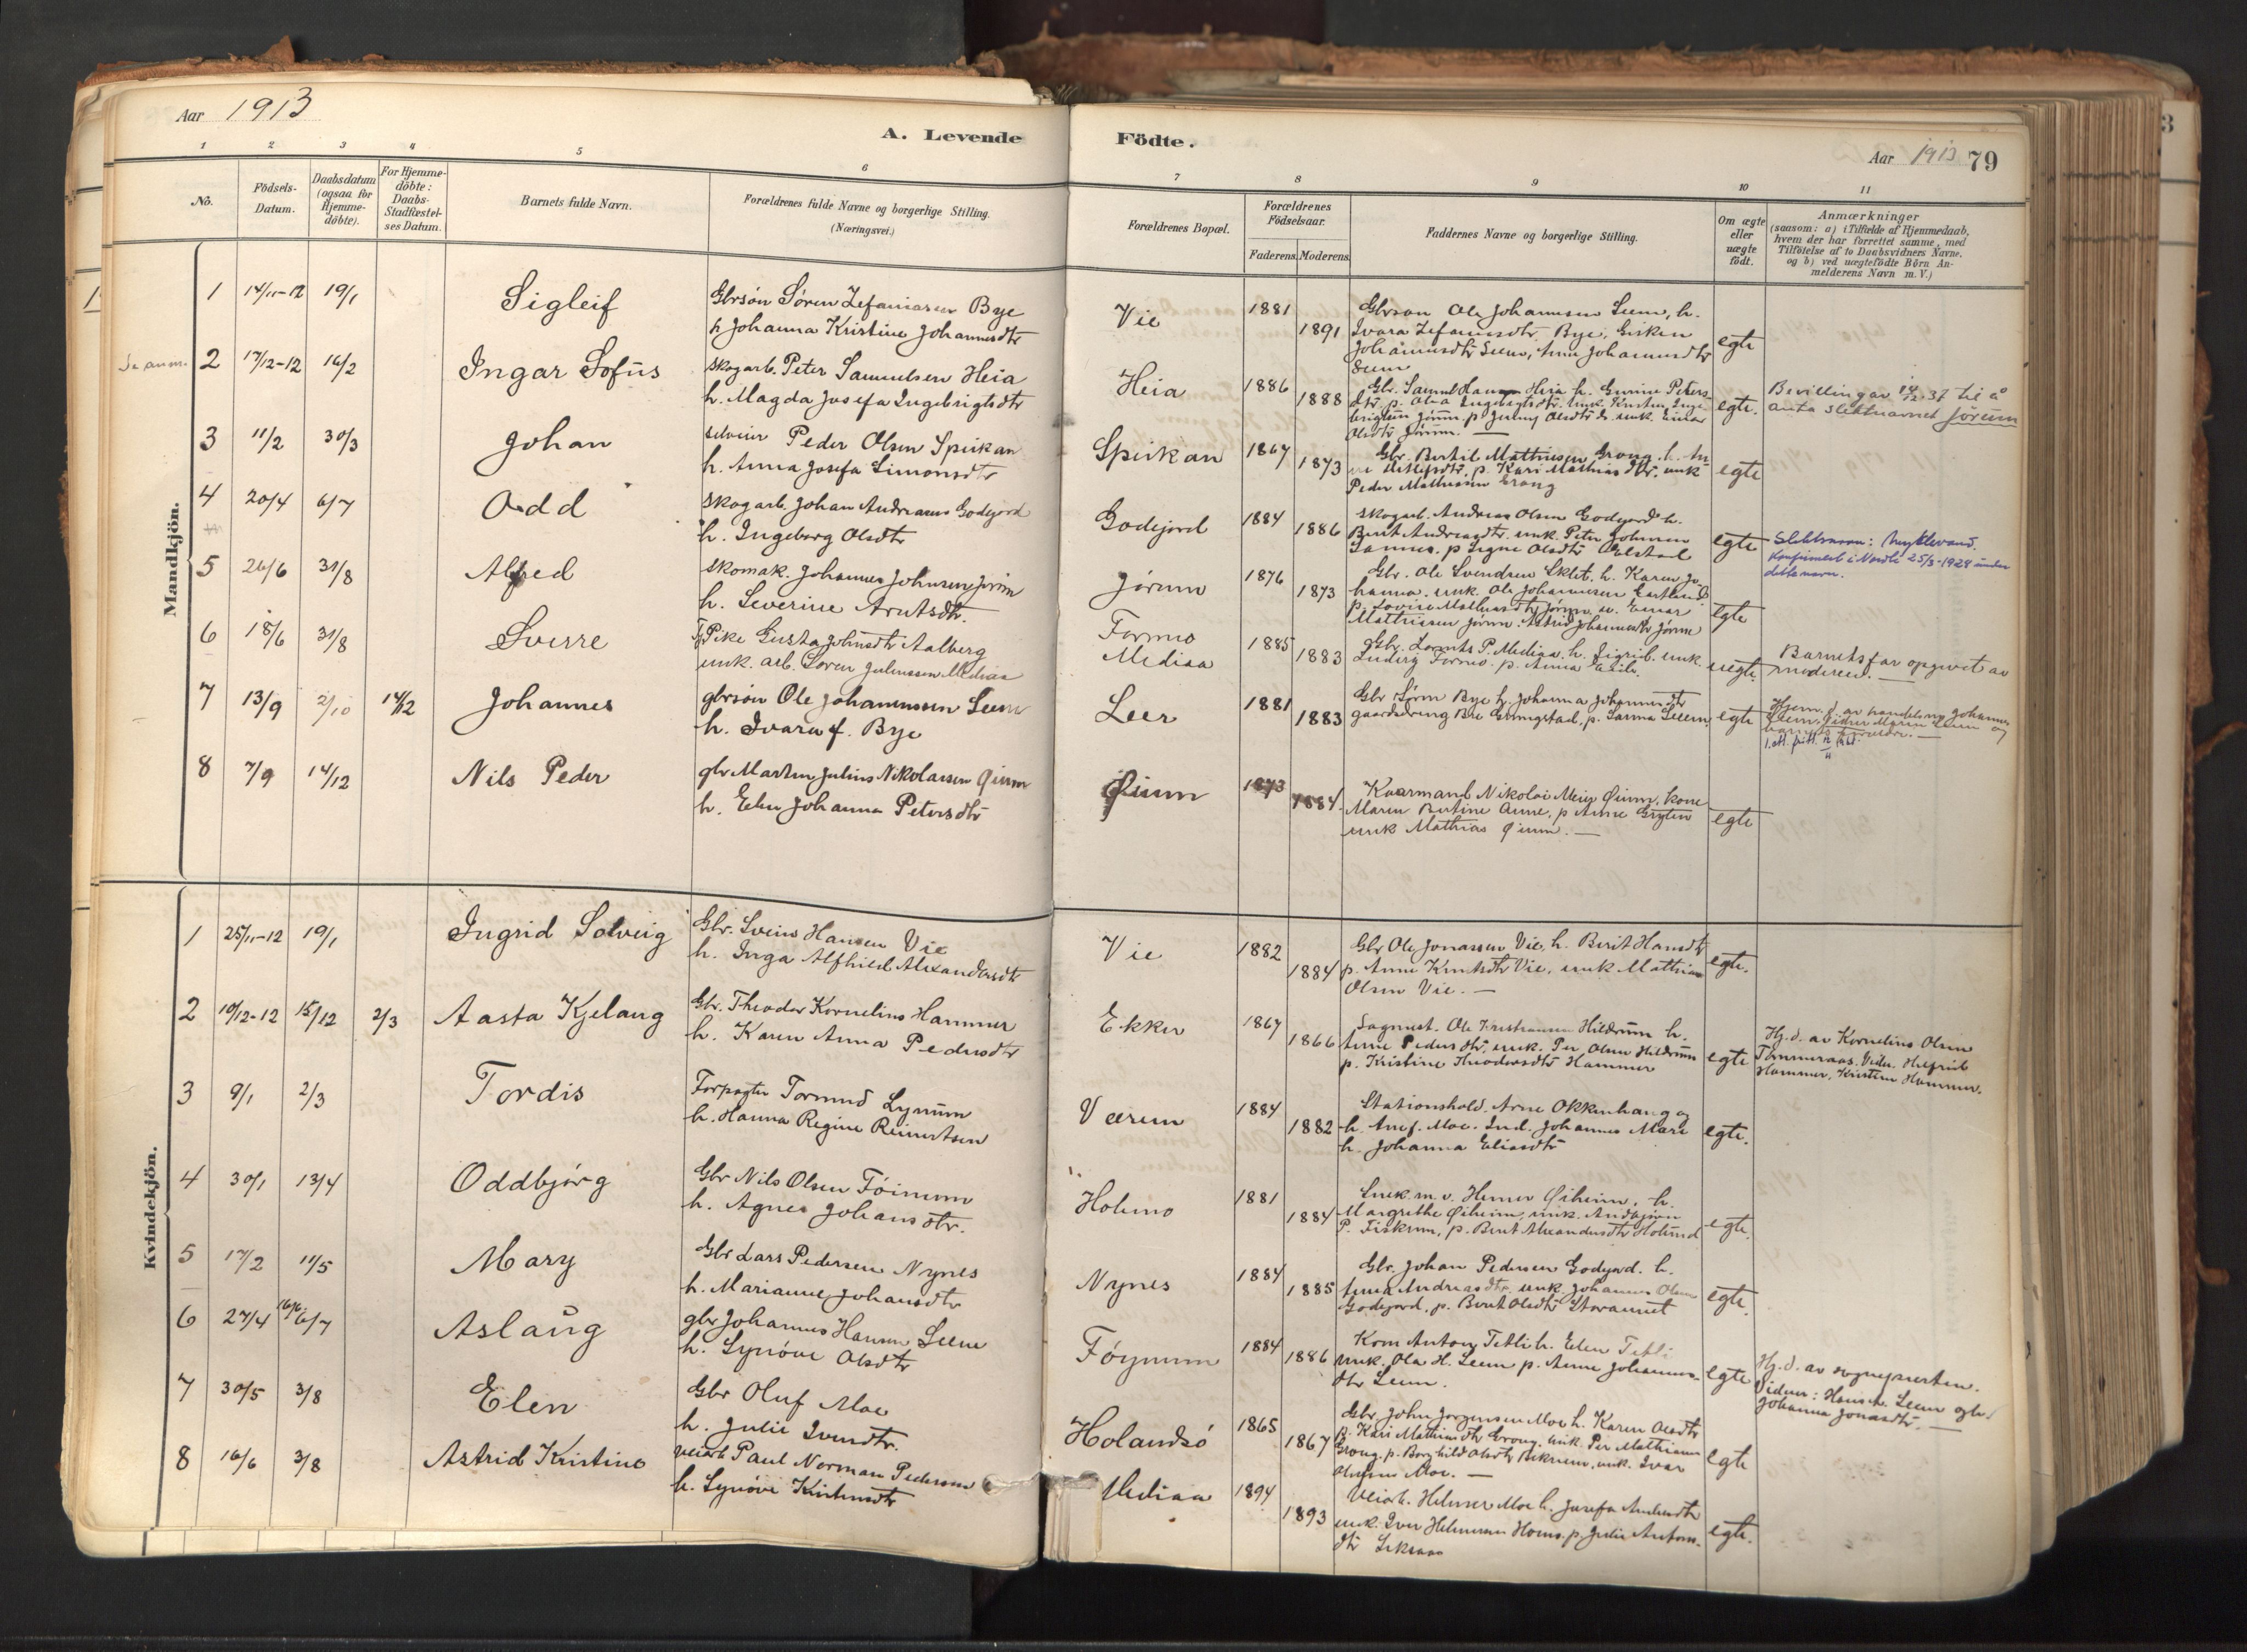 Aar 1913
A. Levende
Födte.
Aar 1913 79
1 2 3 4 5 6
7 8 9 10 11
No.
Födsels-
Datum.
Daabsdatum
(ogsaa for
Hjemme-
döbte).
For Hjemme-
döbte:
Daabs-
Stadfæstel-
ses Datum.
Barnets fulde Navn.
Forældrenes fulde Navne og borgerlige Stilling.
(Næringsvei.)
Forældrenes Bopæl.
Forældrenes
Födselsaar.
Faderens. Moderens.
Faddernes Navne og borgerlige Stilling.
Om ægte
eller
uægte
födt.
Anmærkninger
(saasom: a) i Tilfælde af Hjemmedaab,
hvem der har forrettet samme, med
Tilföielse af to Daabsvidners Navne.
og b) ved uægtefödte Börn An-
melderens Navn m. V.)
Mandkjön.
1 14/11-12 19/1 Sigleif
Gbrsøn Søren Zefaniasen Bye
h Johanna Kristine Johannesdtr
Vie 1881
1891
Gbrsøn Ole Johannesen Seem, h.
Ivara Zefaniasdtr Bye,
Johannesdtr Seem, Anna Johannesdtr
Seem
egte
Se anm.
2 17/12-12 16/2 Ingar Sofus
skogarb. Peter Samuelsen Heia
h. Magda Josefa Ingebrigtsdtr
Heia 1886
1888
Gbr. Samuel Hansen Heia h. Gurine Peters-
dtr, p. Olava Ingebrigtsdtr. unk. Kristen Inge-
brigtsen Jørum p
Olsdtr Jørum.
egte.
Bevilling av 14/12-37 til å
anta slektnavnet Jørum
3 11/2 30/3 Johan
Peder Olsen Spirkan
h. Anna Josefa Simonsdtr
Spirkan 1867
1873
Gbr. Bertil Mathiesen Grong. h.
p. Kari Mathiasdtr. unk
Peder Mathiesen Grong
egte
4 20/4 6/7 Odd
skogarb. Johan Andreasen Godejord
h. Ingeborg Olsdtr
Godejord 1884
1886
Skogarb. Andreas Olsen Godejord h.
Berit Andreasdtr. unk. Peter Johnsen
p Signe Olsdtr
egte
Slektsnavn:
Konfirmert i Nordli 25/3-1928 under
dette navn.
5 26/6 31/8 Alfred
Skomak. Johannes Johnsen Jørum
h. Severine Arntsdtr.
Jørum 1876
1873
Gbr. Ole Svendsen Eklet. h. Karen Jo-
hanna. unk. Ole Johannesen Gartland
p. Lovise Mathiasdtr Jørum, u. Einar
Mathiesen Jørum. Astrid Johannesdtr Jørum
egte
6 18/6 31/8 Sverre
Pike Gusta Johnsdtr Aalberg
unk. arb. Søren Juliussen Mediaa
Formo
Mediaa 1885
1883
Gbr. Lorents P. Mediaa, h. Sigrid. unk.
Ludvig Formo. p. Anna
uegte.
Barnets far opgivet av
moderen.
7 13/9 2/10 14/12 Johannes
gbrsøn Ole Johannessen Seem
h. Ivara f. Bye
Seer 1881
1883
Gbr Søren Bye h. Johanna Johannesdtr
gaardsdreng Ole Grongstad, p. Sanna Seem.
egte
Hjem. d. av handelsm Johannes
Seem. Vidner Maren Seem og
barnets foreldre.
8 7/9 14/12 Nils Peder
gbr Martin Julius Nikolaisen Øium
h. Elen Johanna Petersdtr
Øium 1873
1884
Kaarmand Nikolai Meier Øium, kone
Maren Bertine Anne, p Anne Gryten
unk Mathias Øium.
egte
Kvindekjön.
1 25/11-12 19/1 Ingrid Solveig
Gbr. Svein Hansen Vie
h. Inga Alfhild Alexandersdtr
Vie 1882
1884
Gbr Ole Jonassen Vie, h. Berit Hansdtr
p. Anne Knutsdtr Vie, unk Mathias
Olsen Vie.
egte.
2 10/12-12 15/12 2/3 Aasta Kjelaug
Gbr. Theodor Kornelius Hammer
h. Karen Anna Pedersdtr
Ekker 1867
1866
Sagmest. Ole Kristiansen Hildrum h.
Anne Pedersdtr, unk. Per Olsen Hildrum
p. Kristine Theodorsdtr Hammer
egte
Hj.d. av Kornelius Olsen
Tømmeraas. Vidn. Helfrid
Hammer, Kristine Hammer.
3 9/1 2/3 Tordis
Forpagter Tormod Lynum
h. Hanna Regine Reinertsen
Værem 1884
1882
Stationshold. Arne Okkenhaug og
h. Ane f. Moe. Ind. Johannes Moe
h. Johanna Eliasdtr
egte.
4 30/1 13/4 Oddbjørg
Gbr Nils Olsen Föinum
h. Agnes Johansdtr.
Holmo 1881
1884
Snek. m. v. Hemer Øiheim, h.
Margrethe Øiheim, unk. Andbjørn
P. Fiskum, p. Berit Alexandersdtr Holmo
egte.
5 17/2 11/5 Mary
Gbr Lars Pedersen Nynes
h. Marianne Johansdtr
Nynes 1884
1885
Gbr. Johan Pedersen Godejord. h.
Anna Andreasdtr, unk. Johannes Olsen
Godejord, p. Berit Olsdtr
egte.
6 27/4 16/6 6/7 Aslaug
gbr Johannes Hansen Seem
h. Synøve Olsdtr
Føynum 1884
1886
Kom Anton Tetli h. Elen Tetli
unk. Ola H. Seem p. Anne Johannes-
dtr Seem.
egte
Hj.d. av sognepresten.
Vidner: Hans H. Seem og h.
Johanna Jonasdtr.
7 30/5 3/8 Elen
Gbr Oluf Moe
h. Julie Iversdtr.
Holandsö 1865
1867
Gbr John Jørgensen Moe h. Karen Olsdtr
p. Kari Mathiasdtr Grong. unk. Per Mathiasen
Grong, p. Borghild Olsdtr, unk. Ivar
Olufsen Moe.
egte
8 16/6 3/8 Astrid Kristine
veiarb Paul Norman Pedersen
h. Synøve Kristensdtr
Mediaa 1894
1893
Veiarb. Helmer Moe h. Josefa
unk. Iver Helmersen p. Julie Antons-
dtr
egte.